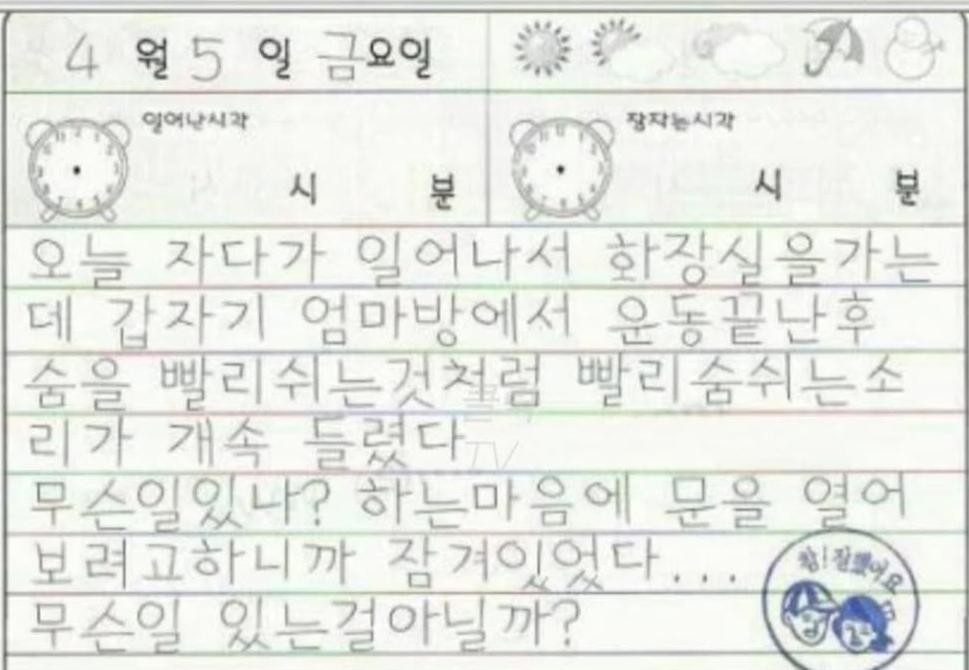 4 월 5 일 금요일
일어난시각
시 분
잠자는시각
시 분
오늘 자다가 일어나서 화장실을가는
데 갑자기 엄마방에서 운동끝난후
숨을 빨리쉬는것처럼 빨리숨쉬는소
리가 개속 들렸다
무슨일있나? 하는마음에 문을 열어
보려고하니까 잠겨있었다...
무슨일 있는걸아닐까?
참!잘했어요
TV